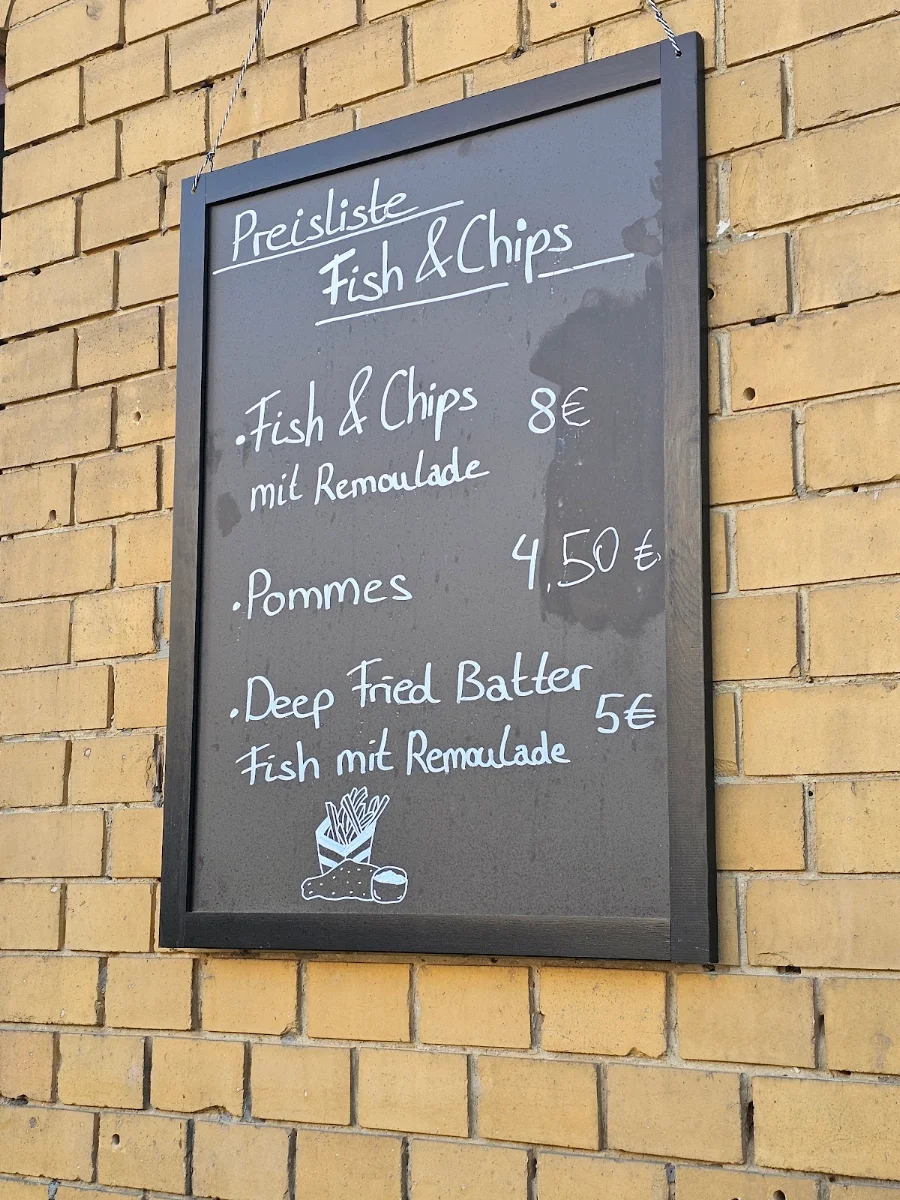 Preisliste
Fish & Chips
• Fish & Chips 8€
mit Remoulade
• Pommes 4,50 €
• Deep Fried Batter
Fish mit Remoulade 5€